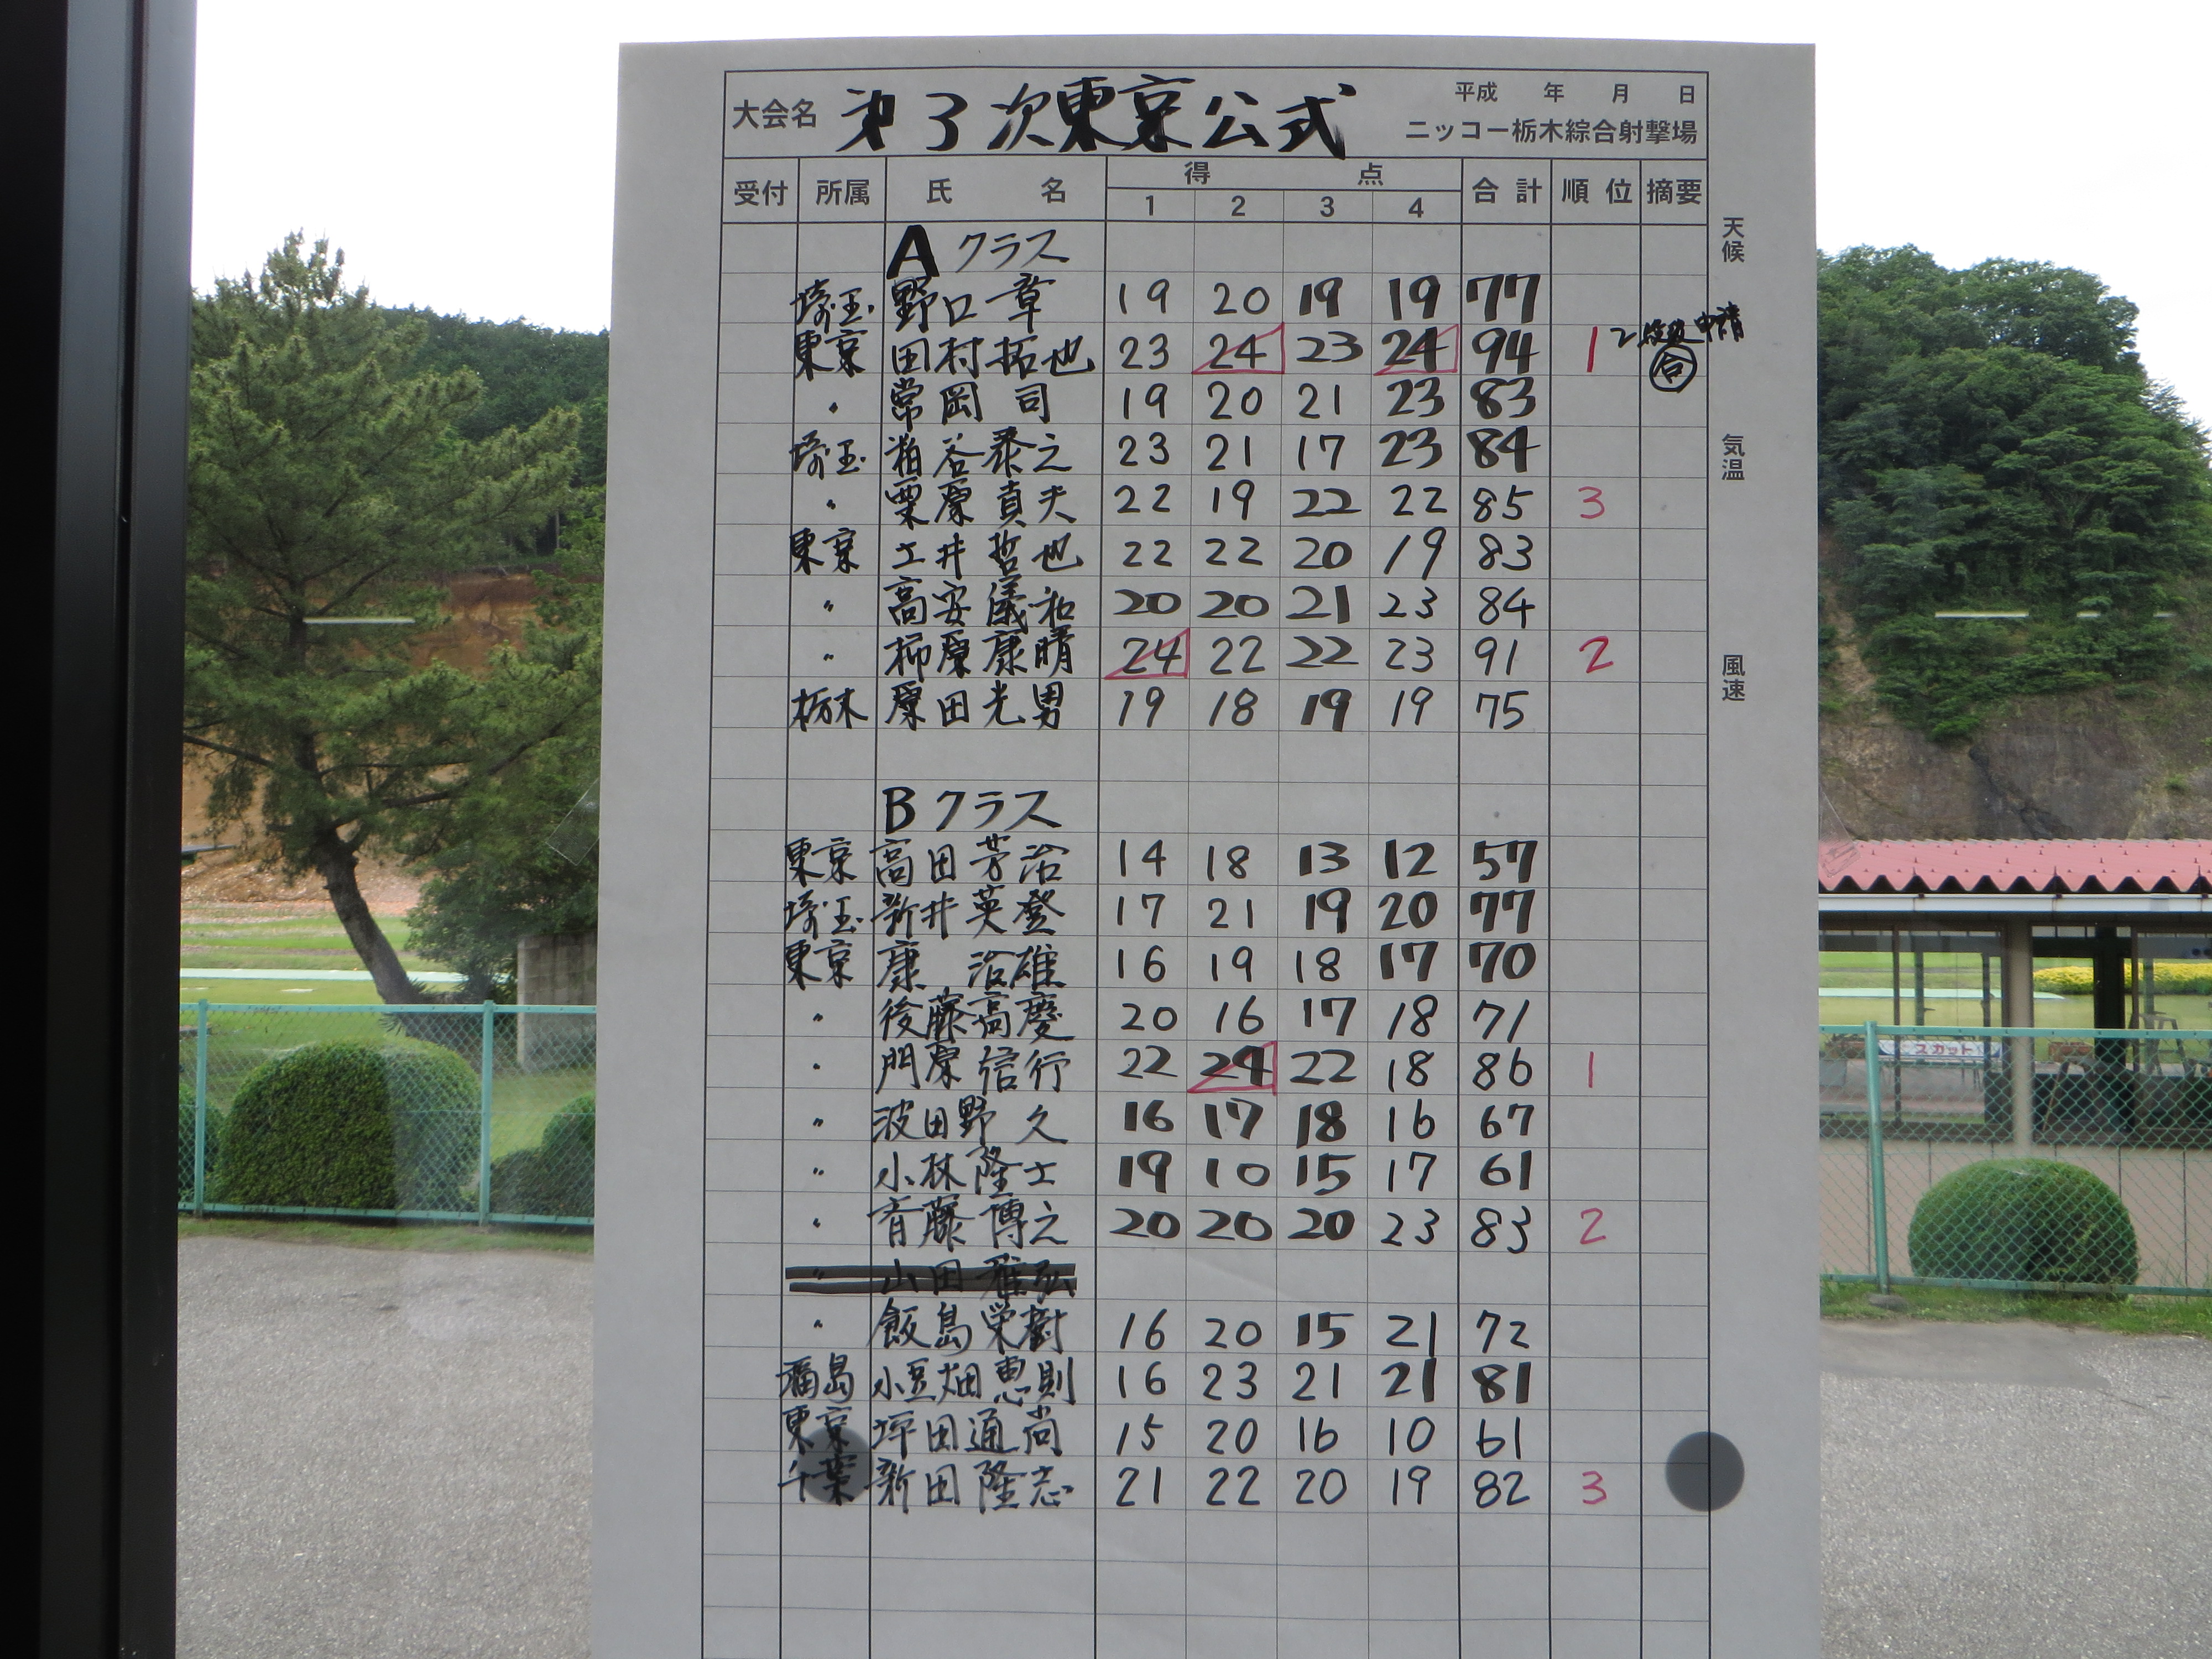 大会名 第3次東京公式 平成 年 月 日
ニッコー栃木綜合射撃場
受付 所属 氏 名 得 点 合計 順位 摘要
1 2 3 4
天候
気温
風速
A クラス
埼玉 野口 章 19 20 19 19 77
東京 田村拓也 23 24 23 24 94 1 申請 合
〃 常岡 司 19 20 21 23 83
埼玉 粕谷泰之 23 21 17 23 84
〃 栗原貞夫 22 19 22 22 85 3
東京 土井哲也 22 22 20 19 83
〃 高安儀和 20 20 21 23 84
〃 柳原康晴 24 22 22 23 91 2
栃木 原田光男 19 18 19 19 75
B クラス
東京 高田芳治 14 18 13 12 57
埼玉 新井英登 17 21 19 20 77
東京 康 治雄 16 19 18 17 70
〃 後藤高慶 20 16 17 18 71
〃 門原信行 22 24 22 18 86 1
〃 波田野 久 16 17 18 16 67
〃 小林隆士 19 10 15 17 61
〃 斉藤博之 20 20 20 23 83 2
〃 山田雅弘
〃 飯島栄樹 16 20 15 21 72
福島 小豆畑恵則 16 23 21 21 81
東京 坪田通尚 15 20 16 10 61
千葉 新田隆志 21 22 20 19 82 3
スカット